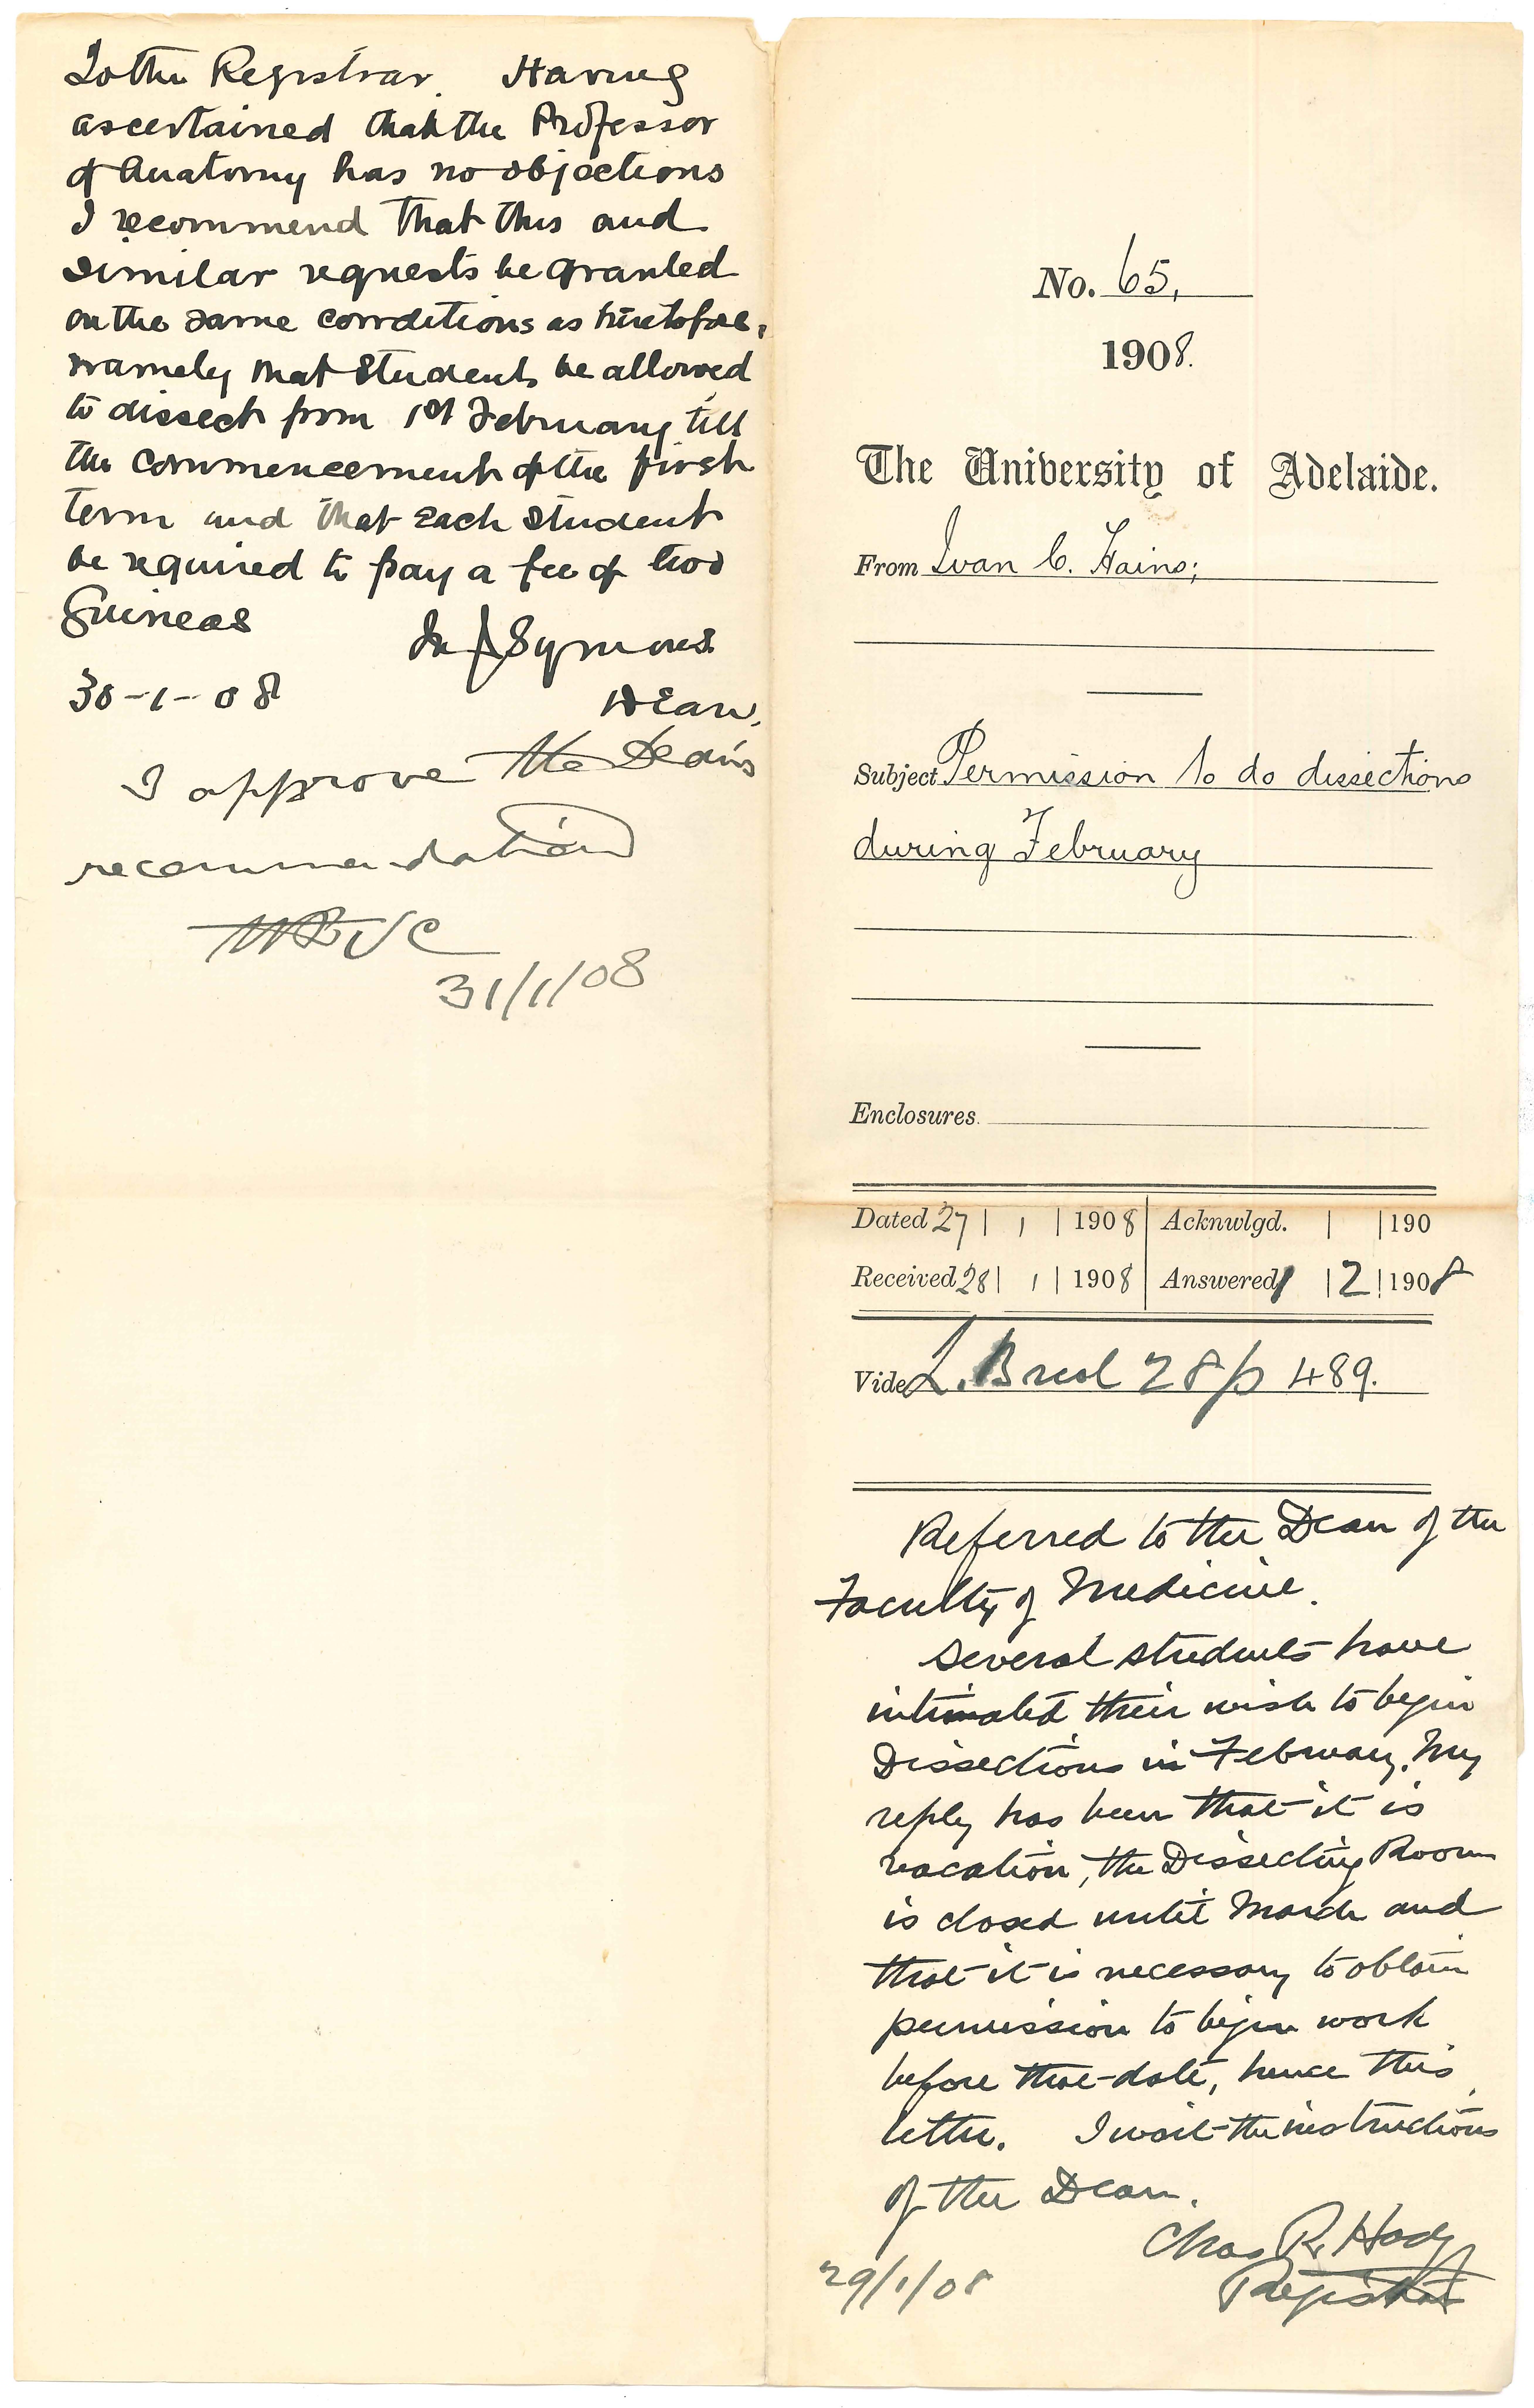 To the Registrar. Having
ascertained that the Professor
of Anatomy has no objections
I recommend that this and
similar requests be granted
on the same conditions as heretofore,
namely that Students be allowed
to dissect from 1st February till
the commencement of the first
term and that each student
be required to pay a fee of two
Guineas
Symons
30-1-08
Dean,
I approve the Dean's
recommendation
31/1/08
No. 65,
1908.
The University of Adelaide.
From Ivan C. Hains;
Subject Permission to do dissections
during February
Enclosures.
Dated 27 | 1 | 1908 | Acknwlgd. | | 190
Received 28 | 1 | 1908 | Answered 1 | 2 | 1908
Vide L. 28 p 489.
Referred to the Dean of the
Faculty of Medicine.
Several students have
intimated their wish to begin
Dissections in February. My
reply has been that it is
vacation, the Dissecting Room
is closed until March and
that it is necessary to obtain
permission to begin work
before that date, hence this
letter. I wait the instructions
of the Dean.
Chas R. Hodge
Registrar
29/1/08